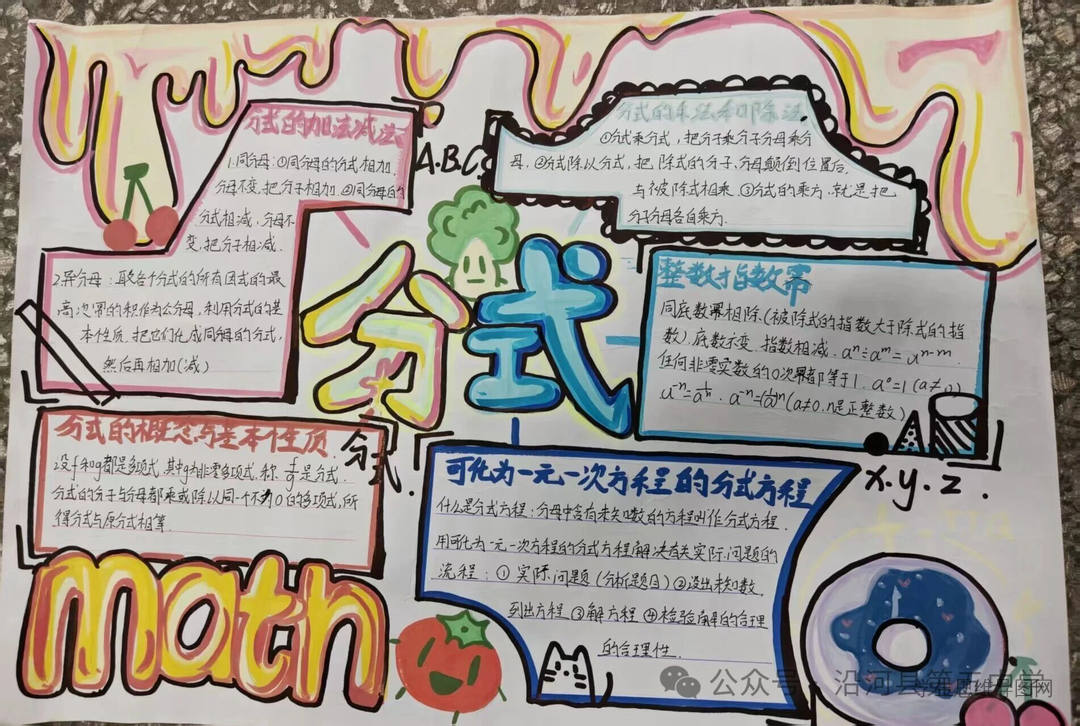 分式的加法减法
1.同分母:①同分母的分式相加,
分母不变,把分子相加 ②同分母的
分式相减,分母不
变,把分子相减.
2.异分母:取各个分式的所有因式的最
高次幂的积作为公分母,利用分式的基
本性质,把它们化成同分母的分式,
然后再相加(减)
A.B.C.
分式的乘法和除法
①分式乘分式,把分子乘分子分母乘分
母,②分式除以分式,把除式的分子,分母颠倒位置后,
与被除式相乘 ③分式的乘方.就是把
分子分母各自乘方.
分式
整数指数幂
同底数幂相除(被除式的指数大于除式的指
数),底数不变,指数相减. aⁿ÷aᵐ=aⁿ⁻ᵐ
任何非零实数的0次幂都等于1. a⁰=1(a≠0)
(a≠0.n是正整数)
x.y.z.
分式的概念与基本性质
设f和g都是多项式,其中g为非零多项式.称 f/g 是分式.
分式的分子与分母都乘或除以同一个不为0的多项式,所
得分式与原分式相等.
分式.
可化为一元一次方程的分式方程
什么是分式方程:分母中含有未知数的方程叫作分式方程.
用可化为一元一次方程的分式方程解决有关实际问题的
流程:① 实际问题(分析题目)②设出未知数,
列出方程 ③解方程 ④检验解的合理
的合理性.
math
公众号·沿河县第五中学